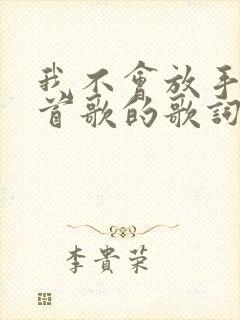 我不會放手
首歌的歌詞
李貴榮